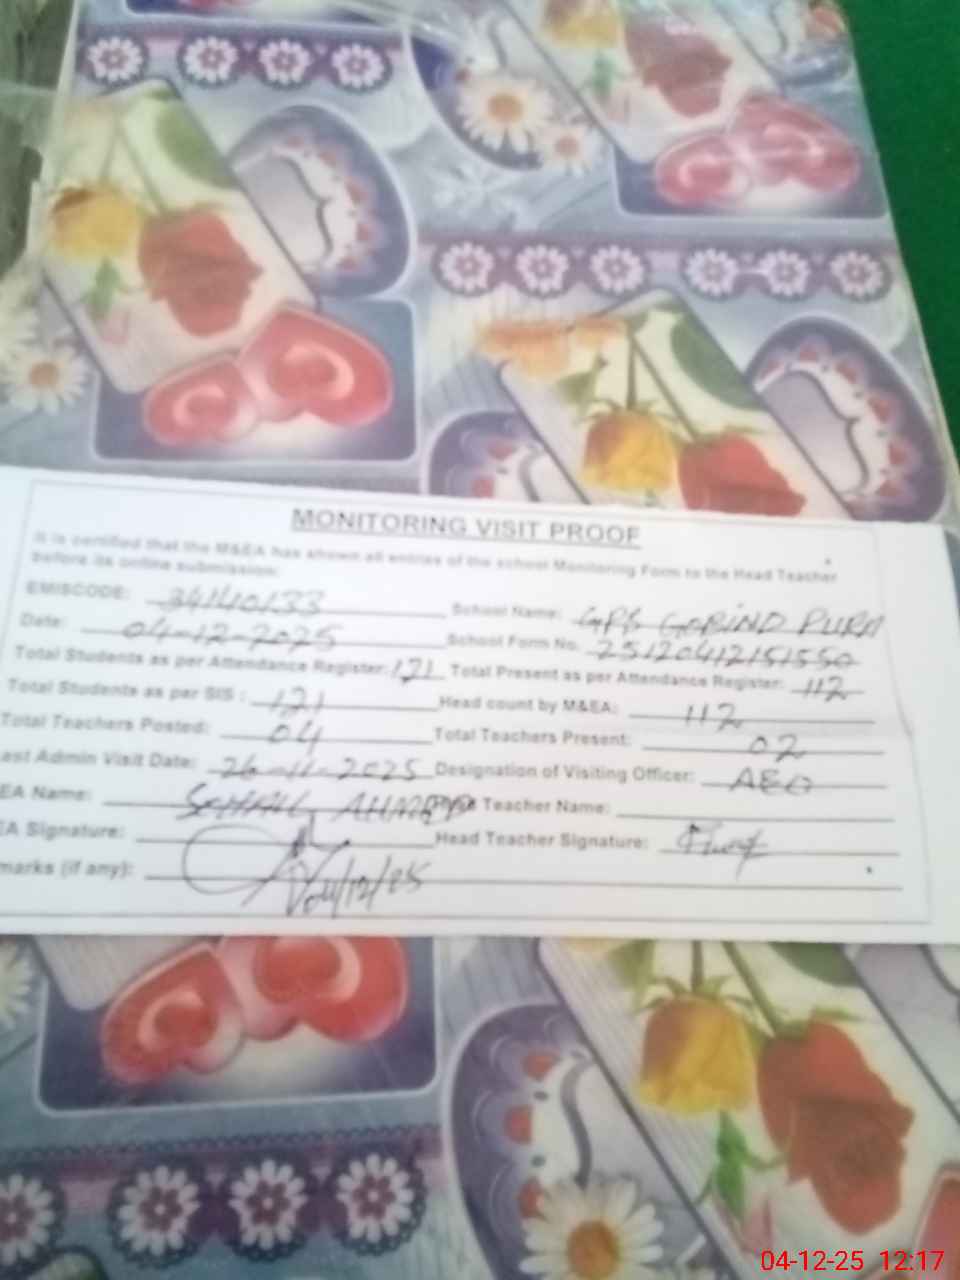 MONITORING VISIT PROOF
It is certified that the M&EA has shown all entries of the school Monitoring Form to the Head Teacher
before its online submission:
EMISCODE: 34140133 School Name: GPS GOBIND PURA
Date: 04-12-2025 School Form No. 25120412151550
Total Students as per Attendance Register: 121 Total Present as per Attendance Register: 112
Total Students as per SIS : 121 Head count by M&EA: 112
Total Teachers Posted: 04 Total Teachers Present: 02
ast Admin Visit Date: 26-11-2025 Designation of Visiting Officer: AEO
EA Name: SOHAIL AHMED Teacher Name:
EA Signature: Head Teacher Signature:
marks (if any): 04/12/25
04-12-25 12:17